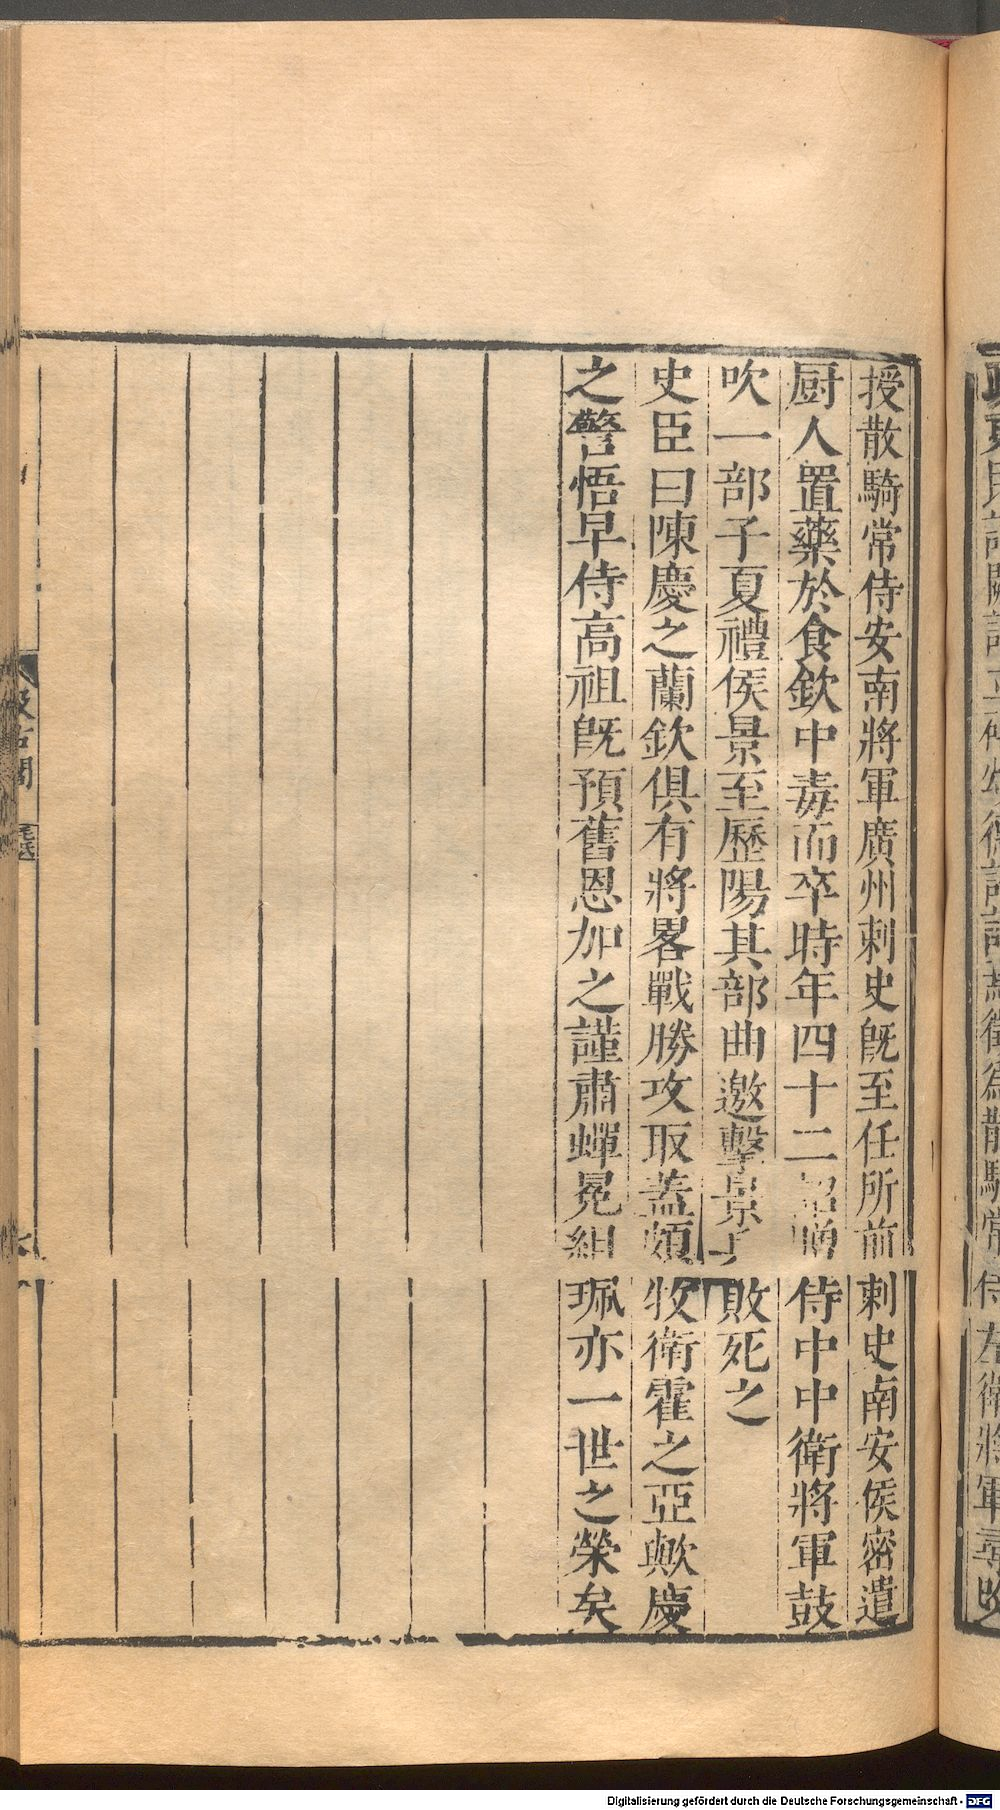 授散騎常侍安南將軍廣州刺史旣至任所前刺史南安侯密遣
厨人置藥於食欽中毒而卒時年四十二詔贈侍中中衛將軍鼓
吹一部子夏禮侯景至歷陽其部曲邀擊景兵敗死之
史臣曰陳慶之蘭欽俱有將畧戰勝攻取蓋頗牧衛霍之亞歟慶
之警悟早侍高祖旣預舊恩加之謹肅蟬冕組珮亦一世之榮矣
汲古閣
毛氏
Digitalisierung gefördert durch die Deutsche Forschungsgemeinschaft - DFG